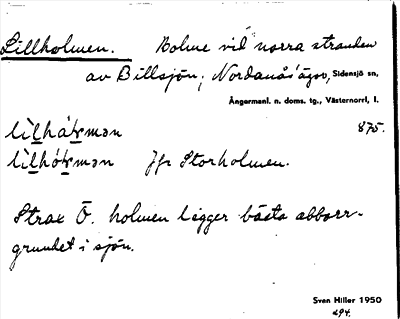 Lillholmen. Holme vid norra stranden
av Billsjön, Nordanås ägor, Sidensjö sn,
Ångermanl. n. doms. tg., Västernorrl. l.
875.
Jfr Storholmen.
Strax Ö. holmen ligger bästa abborr-
grundet i sjön.
Sven Hiller 1950
494.